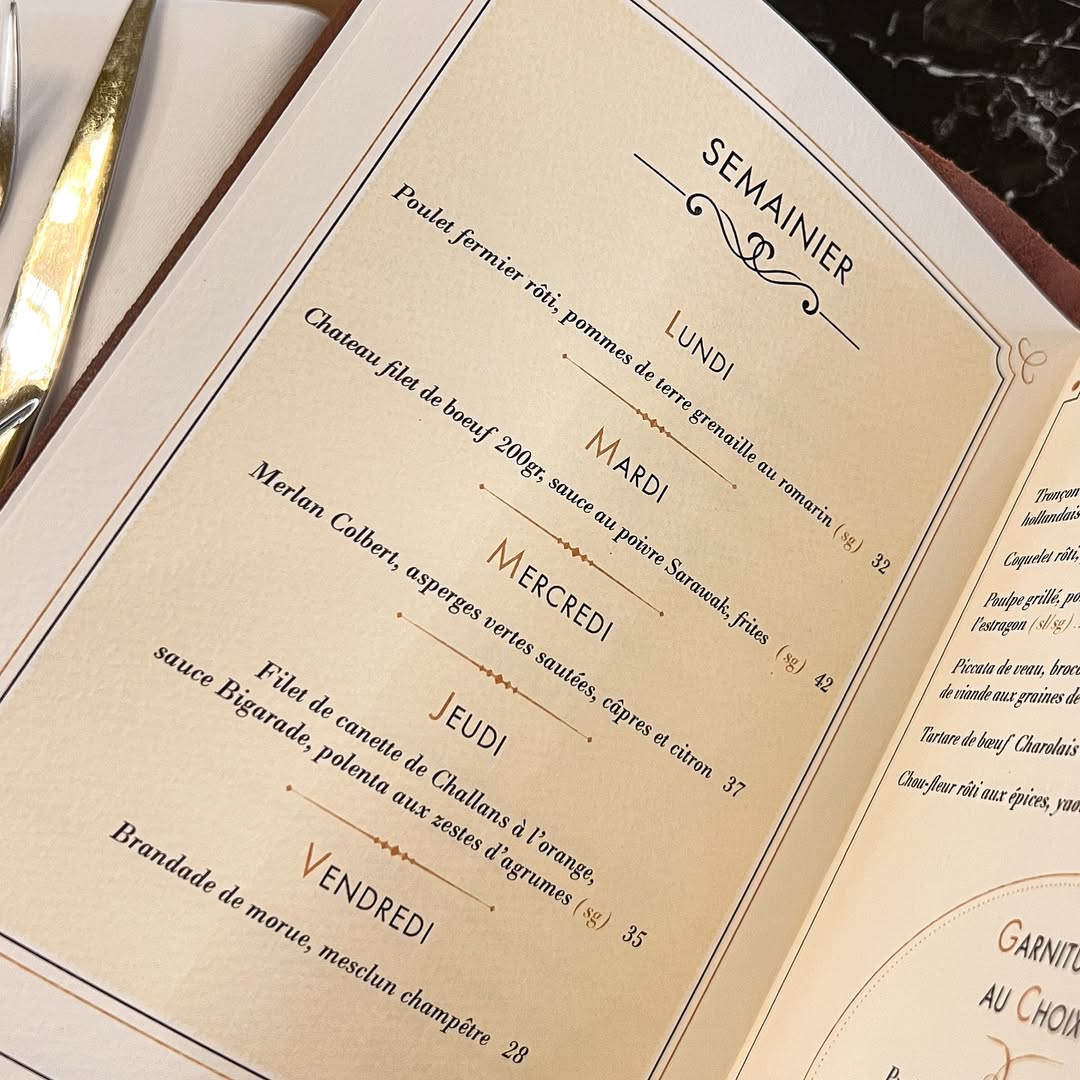 SEMAINIER
LUNDI
Poulet fermier rôti, pommes de terre grenaille au romarin (sg) 32
MARDI
Chateau filet de boeuf 200gr, sauce au poivre Sarawak, frites (sg) 42
MERCREDI
Merlan Colbert, asperges vertes sautées, câpres et citron 37
JEUDI
Filet de canette de Challans à l'orange,
sauce Bigarade, polenta aux zestes d'agrumes (sg) 35
VENDREDI
Brandade de morue, mesclun champêtre 28
Tronçon
hollandais
Coquelet rôti,
Poulpe grillé,
l'estragon (sl/sg)
Piccata de veau,
de viande aux graines de
Tartare de bœuf Charolais
Chou-fleur rôti aux épices,
AU CHOIX